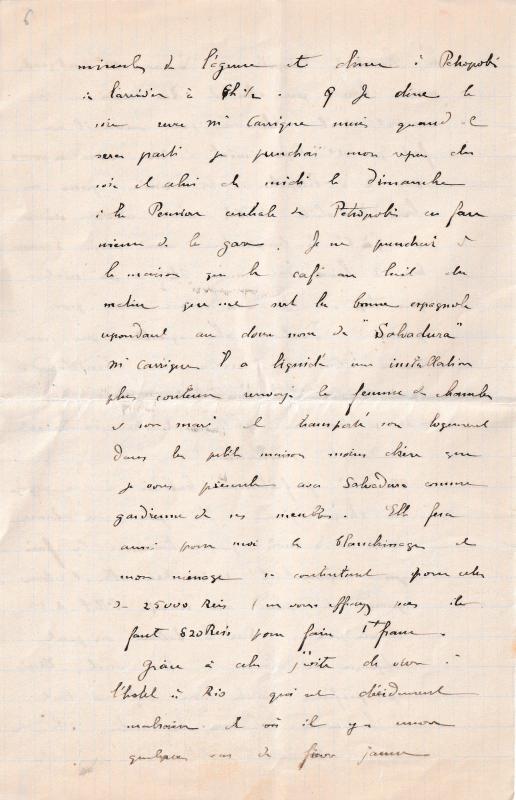 6
minutes de l'égence et dîner à Petropolis
à l'arrivée à 6h 1/2. Je dine le
soir avec Mr Carrigue mais quand il
sera parti je prendrai mon repas du
soir et celui de midi le Dimanche
à la Pension centrale de Petropolis en face
même de la gare. Je ne prendrai à
la maison que le café au lait du
matin que me sert la bonne espagnole
repondant au doux nom de "Salvadura"
Mr Carrigue Il a liquidé une installation
plus couteuse renvoyé la femme de chambre
et son mari et transporté son logement
dans la petite maison moins chère que
je vous présente avec Salvadura comme
gardienne de ses meubles. Elle fera
aussi pour moi le Blanchissage et
mon ménage se contentant pour cela
de 25000 Reis (ne vous effrayez pas il
faut 620 Reis pour faire 1 franc.
Grâce à cela j'évite de vivre à
l'hotel à Rio qui est décidément
malsain et où il y a encore
quelques cas de fièvre jaune